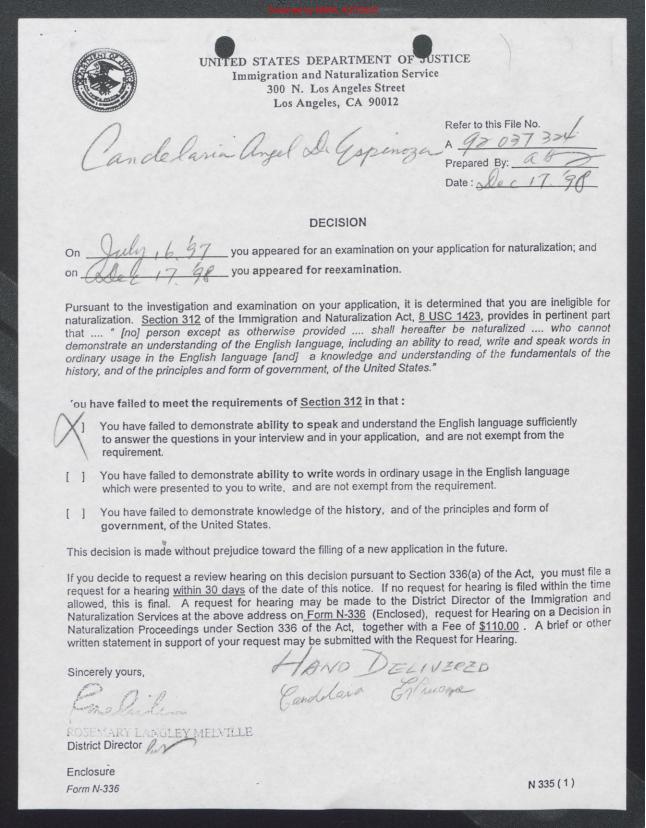 UNITED STATES DEPARTMENT OF JUSTICE
Immigration and Naturalization Service
300 N. Los Angeles Street
Los Angeles, CA 90012
Candelaria Angel De Espinoza
Refer to this File No.
A 92 037 324
Prepared By:
Date : Dec 17. '98
DECISION
On July 16. '97 you appeared for an examination on your application for naturalization; and
on Dec 17. '98 you appeared for reexamination.
Pursuant to the investigation and examination on your application, it is determined that you are ineligible for
naturalization. Section 312 of the Immigration and Nationality Act, 8 USC 1423, provides in pertinent part
that .... " [no] person except as otherwise provided .... shall hereafter be naturalized .... who cannot
demonstrate an understanding of the English language, including an ability to read, write and speak words in
ordinary usage in the English language [and] a knowledge and understanding of the fundamentals of the
history, and of the principles and form of government, of the United States."
ou have failed to meet the requirements of Section 312 in that :
X ] You have failed to demonstrate ability to speak and understand the English language sufficiently
to answer the questions in your interview and in your application, and are not exempt from the
requirement.
[ ] You have failed to demonstrate ability to write words in ordinary usage in the English language
which were presented to you to write, and are not exempt from the requirement.
[ ] You have failed to demonstrate knowledge of the history, and of the principles and form of
government, of the United States.
This decision is made without prejudice toward the filling of a new application in the future.
If you decide to request a review hearing on this decision pursuant to Section 336(a) of the Act, you must file a
request for a hearing within 30 days of the date of this notice. If no request for hearing is filed within the time
allowed, this is final. A request for hearing may be made to the District Director of the Immigration and
Naturalization Services at the above address on Form N-336 (Enclosed), request for Hearing on a Decision in
Naturalization Proceedings under Section 336 of the Act, together with a Fee of $110.00 . A brief or other
written statement in support of your request may be submitted with the Request for Hearing.
Sincerely yours,
HAND DELIVERED
Candelara Espinoza
ROSEMARY LANGLEY MELVILLE
District Director
Enclosure
Form N-336
N 335 ( 1 )